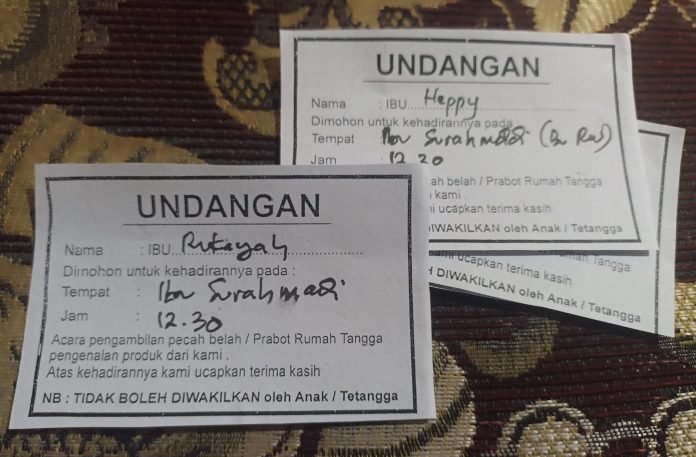 UNDANGAN
Nama : IBU Happy
Dimohon untuk kehadirannya pada
Tempat Ibu Surahmadi
Jam 12.30
ah belah / Prabot Rumah Tangga
kami .
ucapkan terima kasih
DIWAKILKAN oleh Anak / Tetangga
Rumah Tangga
ucapkan terima kasih
DIWAKILKAN oleh Anak / Tetangga
UNDANGAN
Nama : IBU Rukayah
Dimohon untuk kehadirannya pada :
Tempat : Ibu Surahmadi
Jam : 12.30
Acara pengambilan pecah belah / Prabot Rumah Tangga
pengenalan produk dari kami .
Atas kehadirannya kami ucapkan terima kasih
NB : TIDAK BOLEH DIWAKILKAN oleh Anak / Tetangga